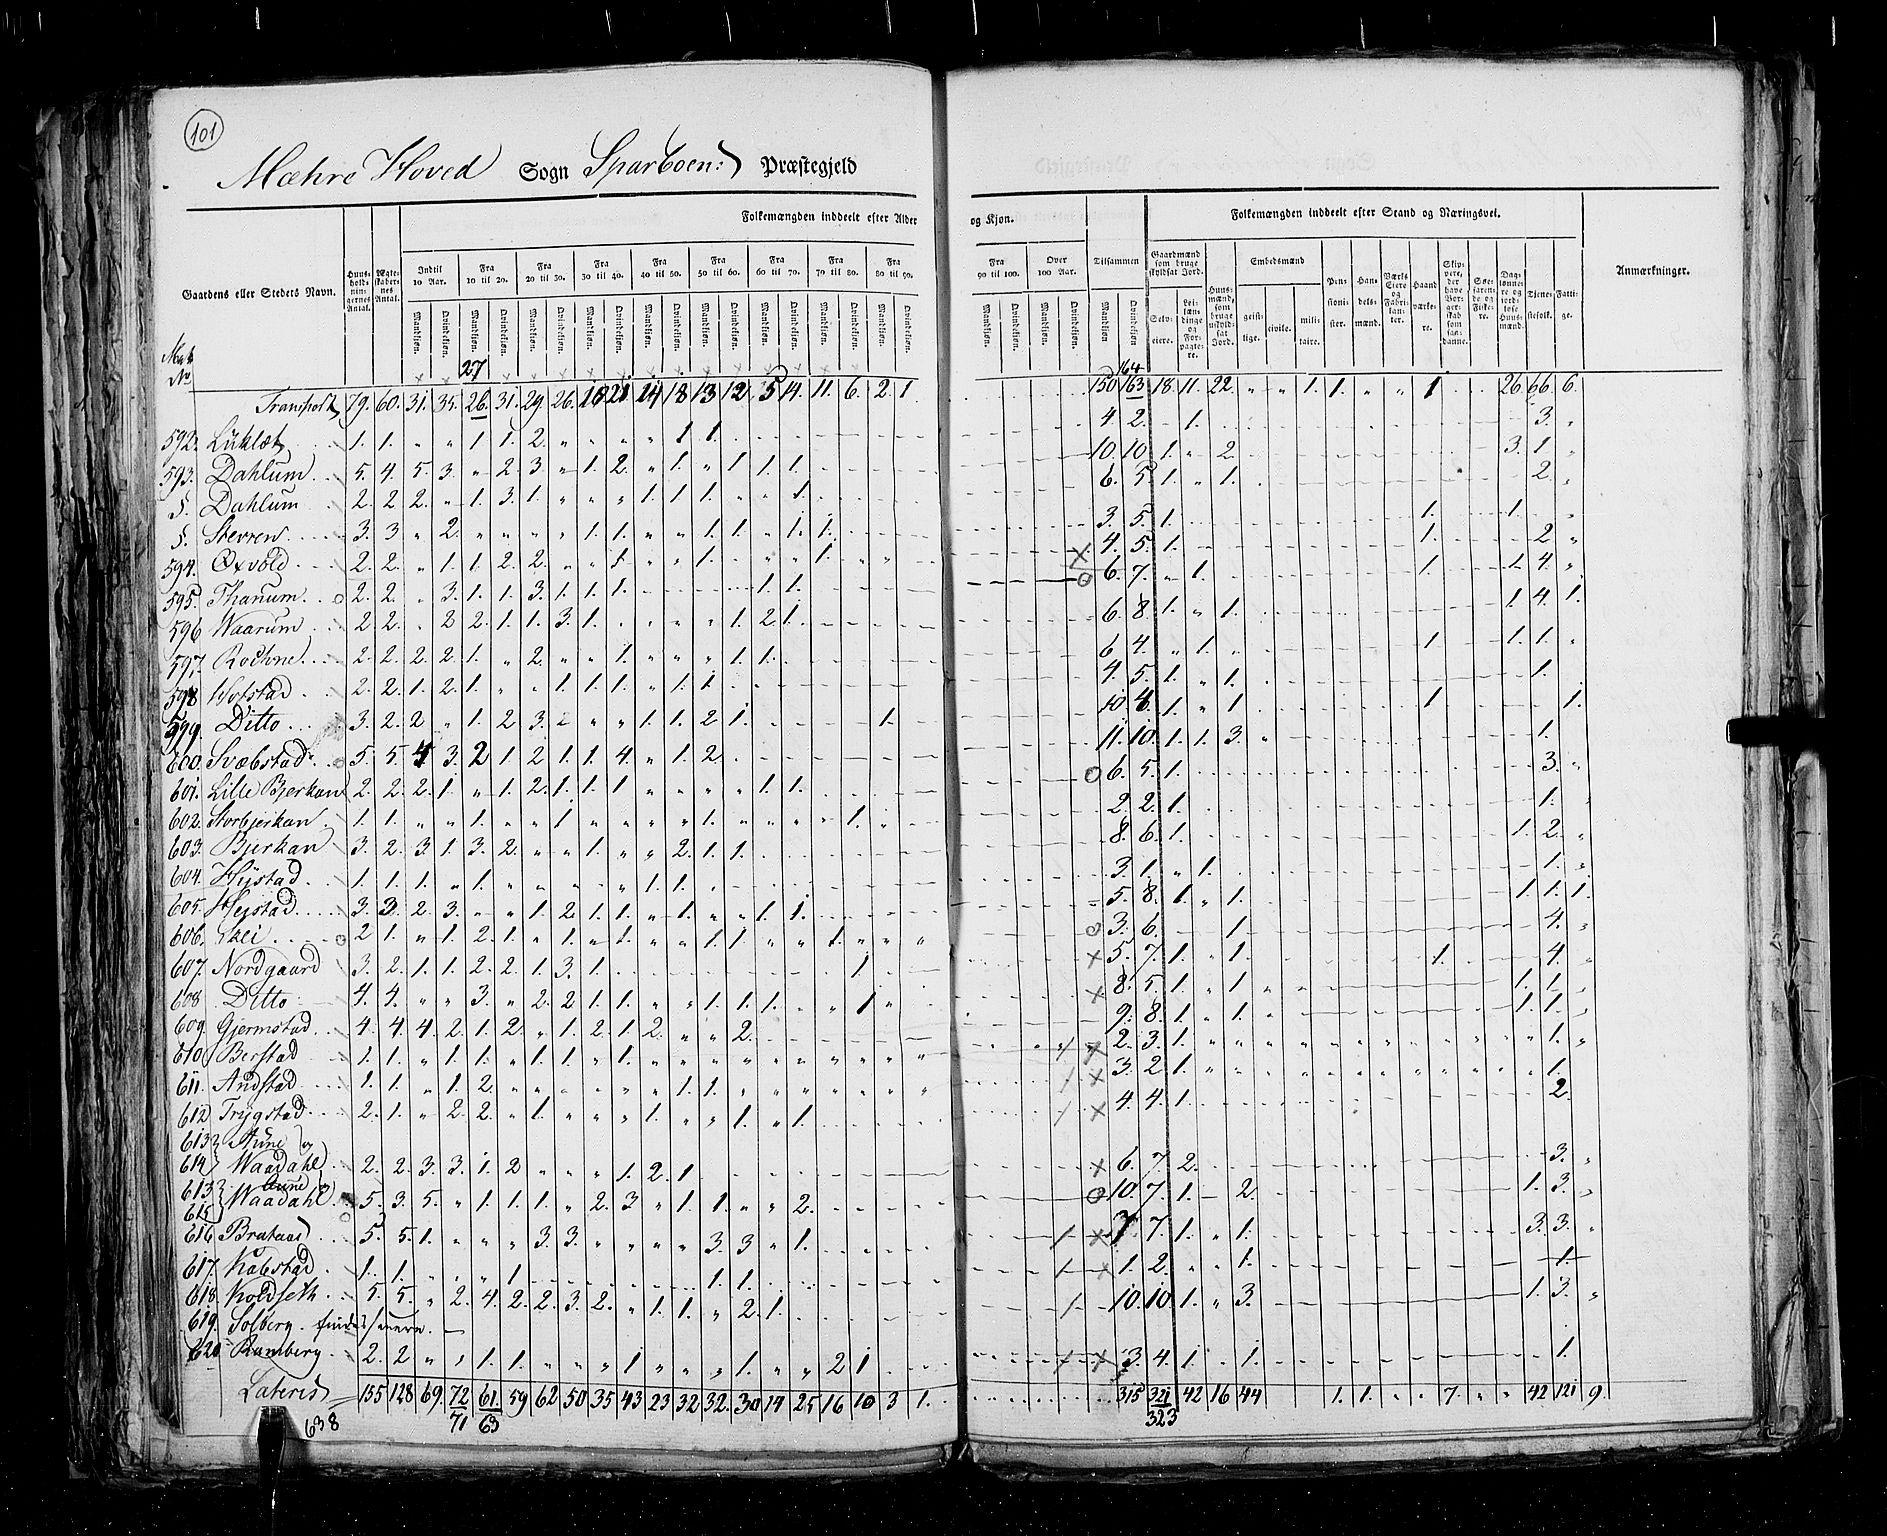 101
Mæhre Hoved Sogn Sparboens Præstegjeld
Gaardens eller Stedets Navn. Huusholdningernes Antal. Ægteskabernes Antal. Folkemængden inddeelt efter Alder og Kjøn. Tilsammen Folkemængden inddeelt efter Stand og Næringsvei. Anmærkninger.
Indtil 10 Aar. Fra 10 til 20. Fra 20 til 30. Fra 30 til 40. Fra 40 til 50. Fra 50 til 60. Fra 60 til 70. Fra 70 til 80. Fra 80 til 90. Fra 90 til 100. Over 100 Aar.
Mandkjøn. Qvindekjøn.
Gaardmænd som bruge skyldsat Jord. Selveiere. Leilændinge og Forpagtere. Huusmænd, som bruge uskyldsat Jord. Embedsmænd geistlige. civile. militaire. Pensionister. Handelsmænd. Værkseiere og Fabrikanter. Haandværkere. Skippere, der have Borgerskab som saadanne. Søefarende og Fiskere. Daglønnere og jordløse Huusmænd. Tjenestefolk. Fattige.
27 164
Transport 79. 60. 31. 35. 26. 31. 29. 26. 18 21 14 18 13 12 5 14. 11. 6. 2. 1. 150 163 18. 11. 22. „ „ 1. 1. „ „ 1 26. 66. 6.
592. Lüklæt 1. 1. „ „ 1 1. 2. „ „ „ „ 1 1. 4. 2. „ 1. 3. „
593. Dahlum 5. 4. 5. 3. „ 2. 3 „ 1. 2. „ 1. „ 1 1. 1. 10. 10. 1. „ 2 3. 1. „
§. Dahlum 2. 2. 2. „ 1. 3. 1. „ „ „ 1. 1. 1. „ „ 1. 6. 5. 1. „ 1. 2. „
§. Stevren 3. 3 „ 2. „ „ „ „ 1. 1. „ „ 1. 1. „ 1. 1. 3. 5. 1. 1. 1. „
594. Øxvold 2. 2. „ 1. 1. 2. 2. „ „ 1. „ „ 1. „ „ „ 1. „ „ 4. 5. 1. 1. 2. „
595. Thanum 2. 2. „ 3. 1. 1. 3. 1. 1. 1. 1. 1. 6. 7. „ 1. 1. 1. 4. „
596 Waarum 2. 2. „ 2 2. 1. 1. 3. 1. „ „ „ „ 1. 2. 1. 6. 8. 1. „ 1. 1. 4. 1.
597. Rochne 2. 2. 2. 2. 1. „ 2. „ „ 1. „ „ „ 1. 1. 6 4. „ 1. 1 1. 1. „
598 Hofstad 2. 2. 1. 2. 1. „ „ 1. 1. 1. „ 1. 1. 4. 5. 1. „ 1. 1.
599. Ditto 3. 2. 2 „ 1. 2. 3. 2 „ „ 1. 1. 2. 1. 1. 10 4. 1. „ 1 1 1.
600. Svæbstad 5. 5. 4 3. 2 1. 2 1. 1. 4. „ 1. 2. 11. 10. 1. 1. 3. „ 1.
601. Lille Bjerkan 2. 2. 2. 1. „ 1. 2. 1. 1. 1 „ „ „ „ 1. 1. 6. 5. 1. 3. „
602. Storbjerkan 1. 1. „ „ 1. „ „ 1 „ „ „ „ 1. „ „ „ „ 1. „ 2 2. 1. 1. „
603. Bjerkan 3. 2. 3 1. 3. 2. „ „ 1. „ „ 2. 1. 1. 8. 6. 1. 1. 2. „
604. Hÿstad 1. 1. 1. „ 1. „ „ „ „ „ 1. 1. 3. 1. „ 1. 1. „
605. Hegstad 3. 3. 2. 3. „ „ 1. 2. 1. 1. „ 1. „ „ 1. 1. 5. 8. 1. „ 1. 1. 1. 1.
606. Skei 2 1. „ 1. 2. 1. „ 1. „ 1. „ „ 1. 1. „ „ 1. „ „ „ 3. 6. 1 4. „
607. Nordgaard 3. 2. 1. 1. 2. 2. 1. 3. 1. 1. 5. 7. 1. „ 1. 1. 4. „
608 Ditto 4. 4. „ „ 3. „ 2. 2 1. 1. „ „ 1. 1. 1. „ „ 1 „ 8. 5. 1. „ 1 „ „ 1. 1. „
609. Gjermstad 4. 4. 4. 2. 1. 2. „ 1. 2. 1. 2. „ „ 2. 9. 8. 1. „ 1. „ 1. 1. „
610 Berstad 1. 1. „ 1. 1. „ 1. 1. „ 1. „ „ „ „ „ „ „ „ „ „ 2. 3. 1. „ „ „ „ „ „ „ „ „ „ „ „ 1. „
611. Andstad 1. 1. „ 1. 2. „ „ „ „ „ „ 1. 1. „ „ „ „ „ „ „ 3. 2. 1. „ „ „ „ „ „ „ „ „ „ „ „ 1.
612 Trÿgstad 2. 1. „ 2. 2. „ 1. „ „ „ 1. „ „ 1. „ 1. 4. 4. 1. 2.
613 Aune og
614 Waadahl 2. 2. 3. 3. 1. 2 „ „ „ 1. 2. 1 6. 7 2. 3. „
613 Aune
615 Waadahl 5. 3. 5. „ 1. 1. 1. „ 2. 3 „ 1. 1. „ „ 2. 10. 7. 1. 2. 1. 3. „
616 Brataas 5. 5. 1. „ „ „ 3. 3. „ „ „ „ 3. 3 „ 1. 7. 7. 1. „ 1. 3. 3. „
617. Kabstad 1. 1. „ „ „ 1. 1. 1. 1. 2. „ „ 1. 1.
618. Koldseth 5. 5. „ 2. 4. 2. 2. 3. 2. „ 1. 1. „ 2. 1. 10. 10. 1. „ 3. 1. 3. „
619. Solberg.
620 Ramberg 2. 2 „ „ 1. 1. „ „ „ 1 „ „ „ 1. „ „ 2 1 3. 4. 1. „ 1. 1.
Lateris 135 128 69. 72 61. 59 62. 50 35 43 23 32 32. 30 14 25 16 10 3 1. 315 321 42 16 44 1. 1. „ „ 7. „ „ 42 121 9.
638 71 63 323